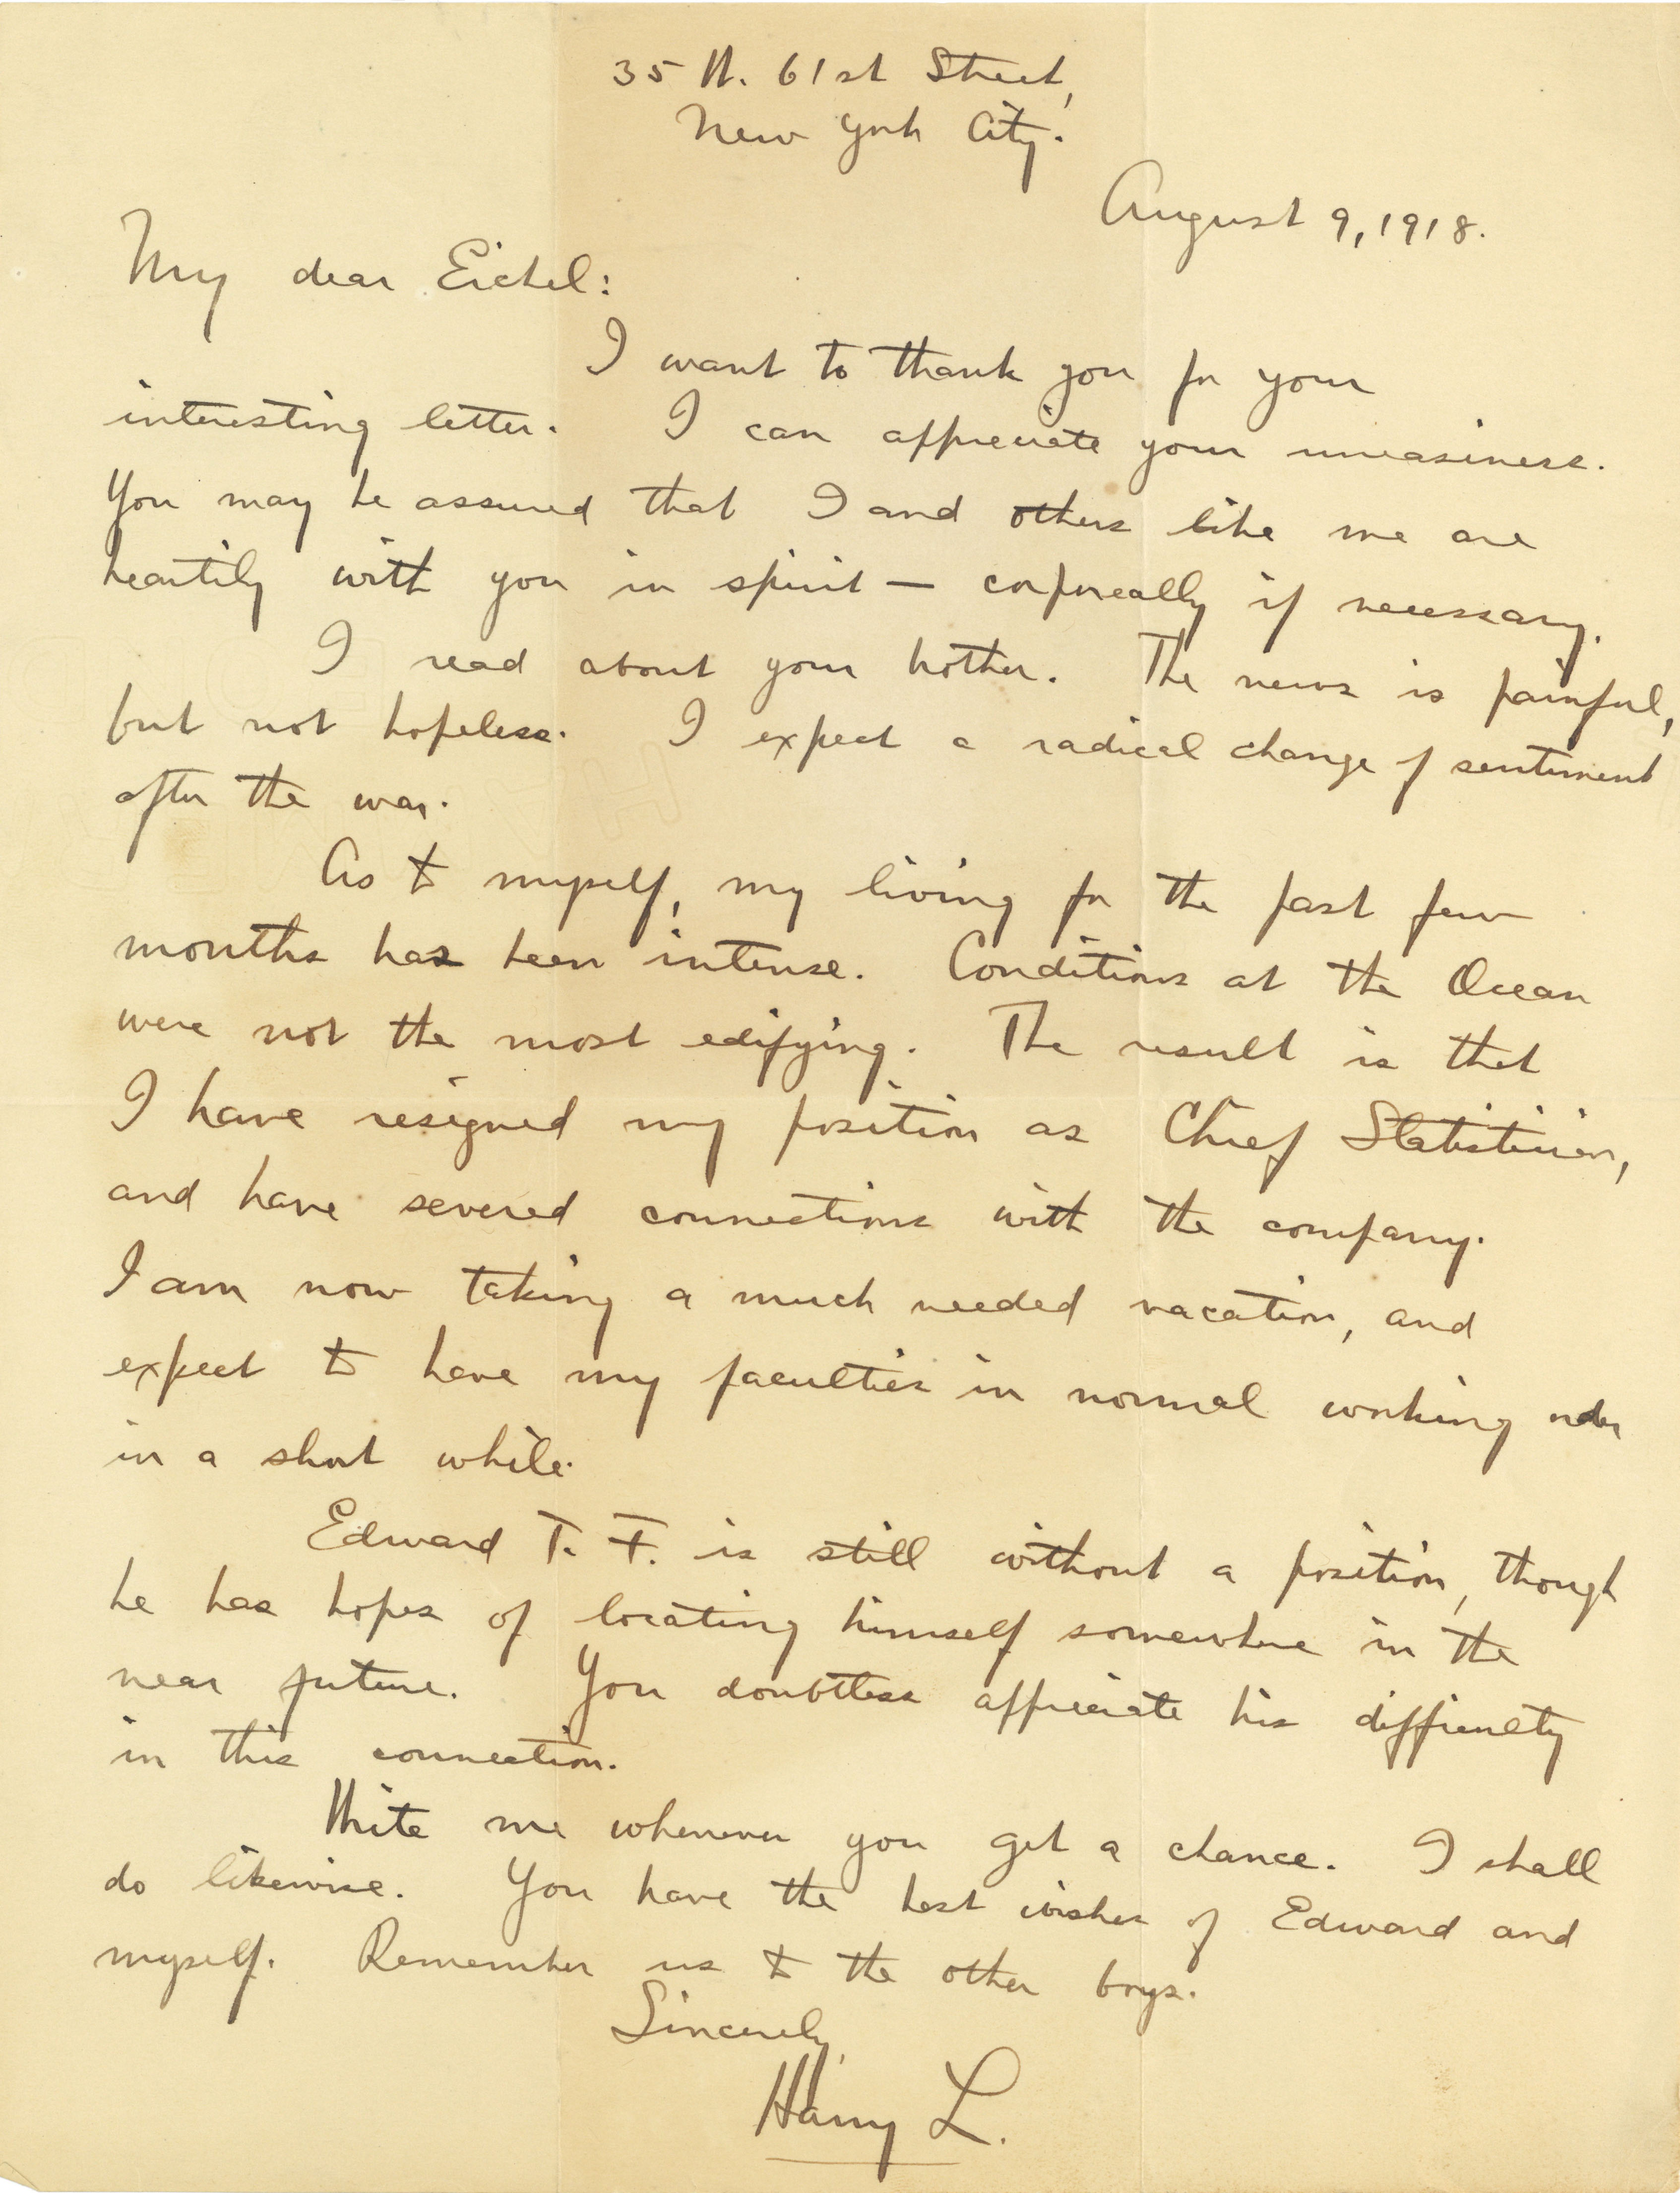 35 W. 61st Street,
New York City.
August 9, 1918.
My dear Eichel:
I want to thank you for your
interesting letter. I can appreciate your uneasiness.
You may be assured that I and others like me are
heartily with you in spirit — corporeally if necessary.
I read about your brother. The news is painful,
but not hopeless. I expect a radical change of sentiment
after the war.
As to myself, my living for the past few
months has been intense. Conditions at the Ocean
were not the most edifying. The result is that
I have resigned my position as Chief Statistician,
and have severed connections with the company.
I am now taking a much needed vacation, and
expect to have my faculties in normal working order
in a short while.
Edward T. F. is still without a position, though
he has hopes of locating himself somewhere in the
near future. You doubtless appreciate his difficulty
in this connection.
Write me whenever you get a chance. I shall
do likewise. You have the best wishes of Edward and
myself. Remember us to the other boys.
Sincerely,
Harry L.